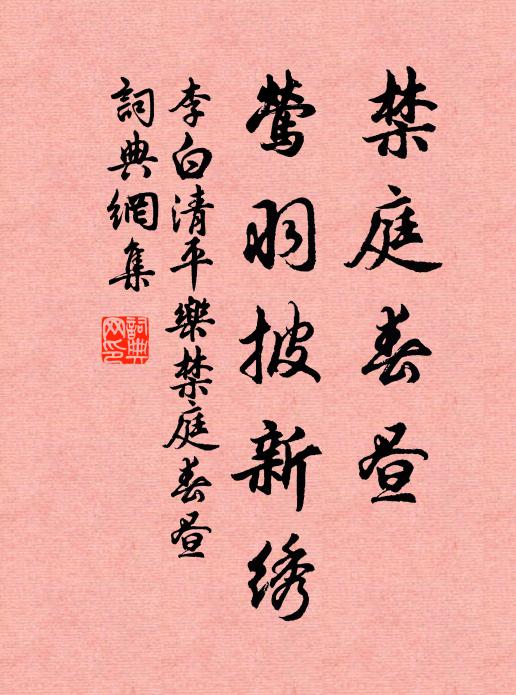 禁庭春昼
鶯羽披新绣
李白清平樂禁庭春昼
詞典網集
詞典網印